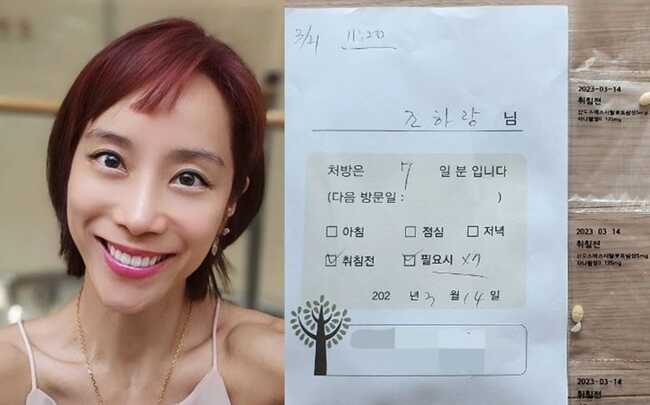 3/21 11:20
조하랑 님
처방은 7 일분 입니다
(다음 방문일 : )
아침 점심 저녁
취침전 필요시 x7
202 년 3 월 14 일
2023-03-14
취침전
2023 03 14
취침전
2023-03-14
취침전